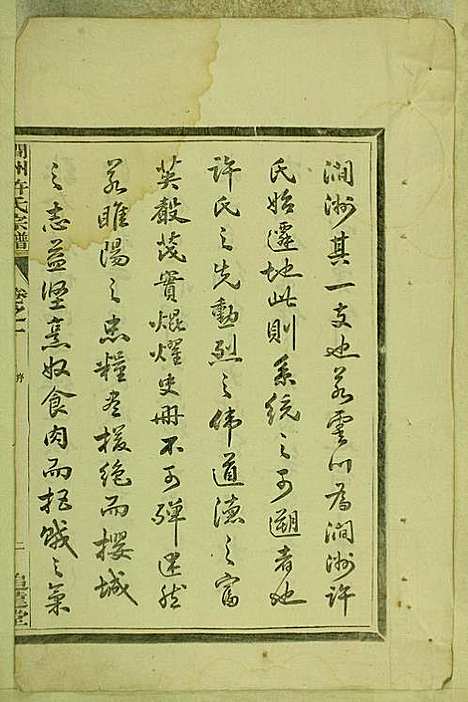 澗洲其一支也若雲川為澗洲許
氏始遷地此則系統之可遡者也
許氏之先勳烈之偉道德之富
英聲茂實焜燿史冊不可殫述然
若睢陽之忠糧盡援絕而攖城
之志益堅烹奴食肉而拒賊之氣
澗州許氏宗譜
卷之一
序
二
堂